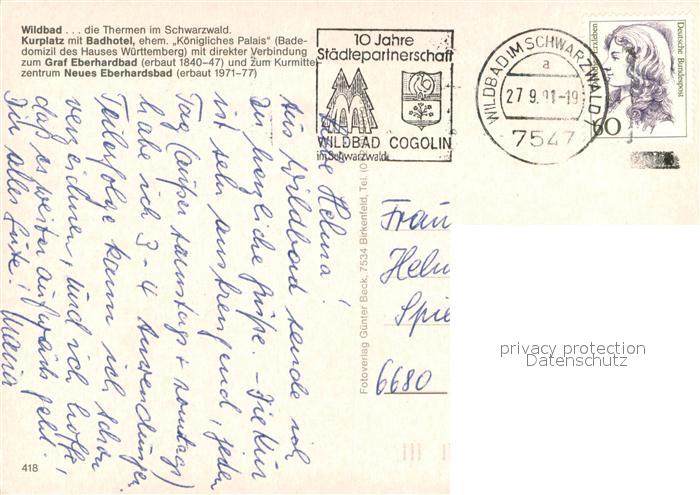 Wildbad . . . die Thermen im Schwarzwald.
Kurplatz mit Badhotel, ehem. „Königliches Palais" (Bade-
domizil des Hauses Württemberg) mit direkter Verbindung
zum Graf Eberhardbad (erbaut 1840–47) und zum Kurmittel-
zentrum Neues Eberhardsbad (erbaut 1971–77)
10 Jahre
Städtepartnerschaft
WILDBAD COGOLIN
im Schwarzwald
WILDBAD IM SCHWARZWALD
a
27.9.91-19
7547
Deutsche Bundespost
60
Liebe Helma!
Aus Wildbad sende ich
Dir herzliche Grüße. – Die Kur
ist sehr anstrengend, jeden
Tag (außer samstags + sonntags)
habe ich 3-4 Anwendungen
Teilerfolge kann ich schon
verzeichnen, und ich hoffe,
daß es weiter aufwärts geht.
Dir alles Gute! Maria
Fotoverlag Günter Beck, 7534 Birkenfeld, Tel. (0
Frau
Helm
Spie
6680
privacy protection
Datenschutz
418